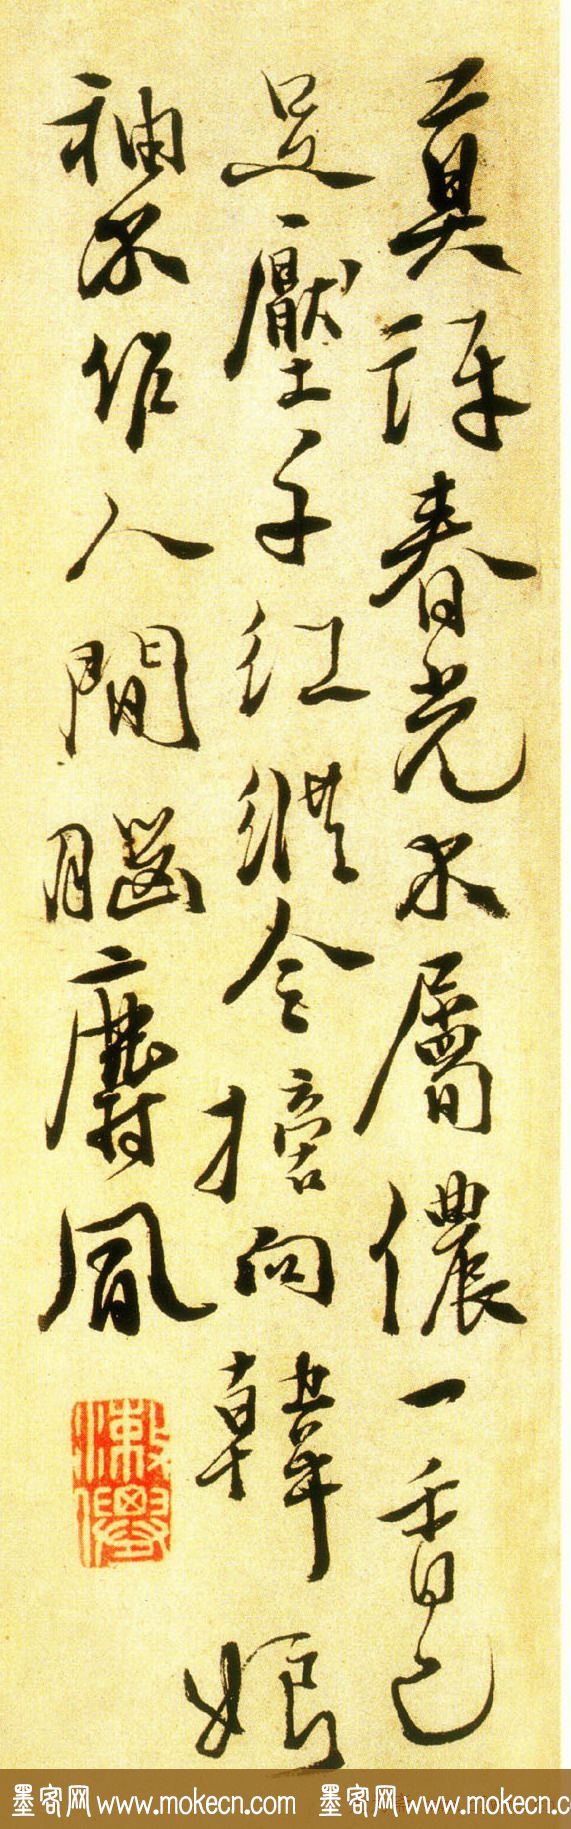 莫訝春光不屬儂一香已
足壓千紅縱令摘向韓娘
袖不作人間腦麝風
漱僊
墨客网www.mokecn.com 墨客网www.mokecn.com